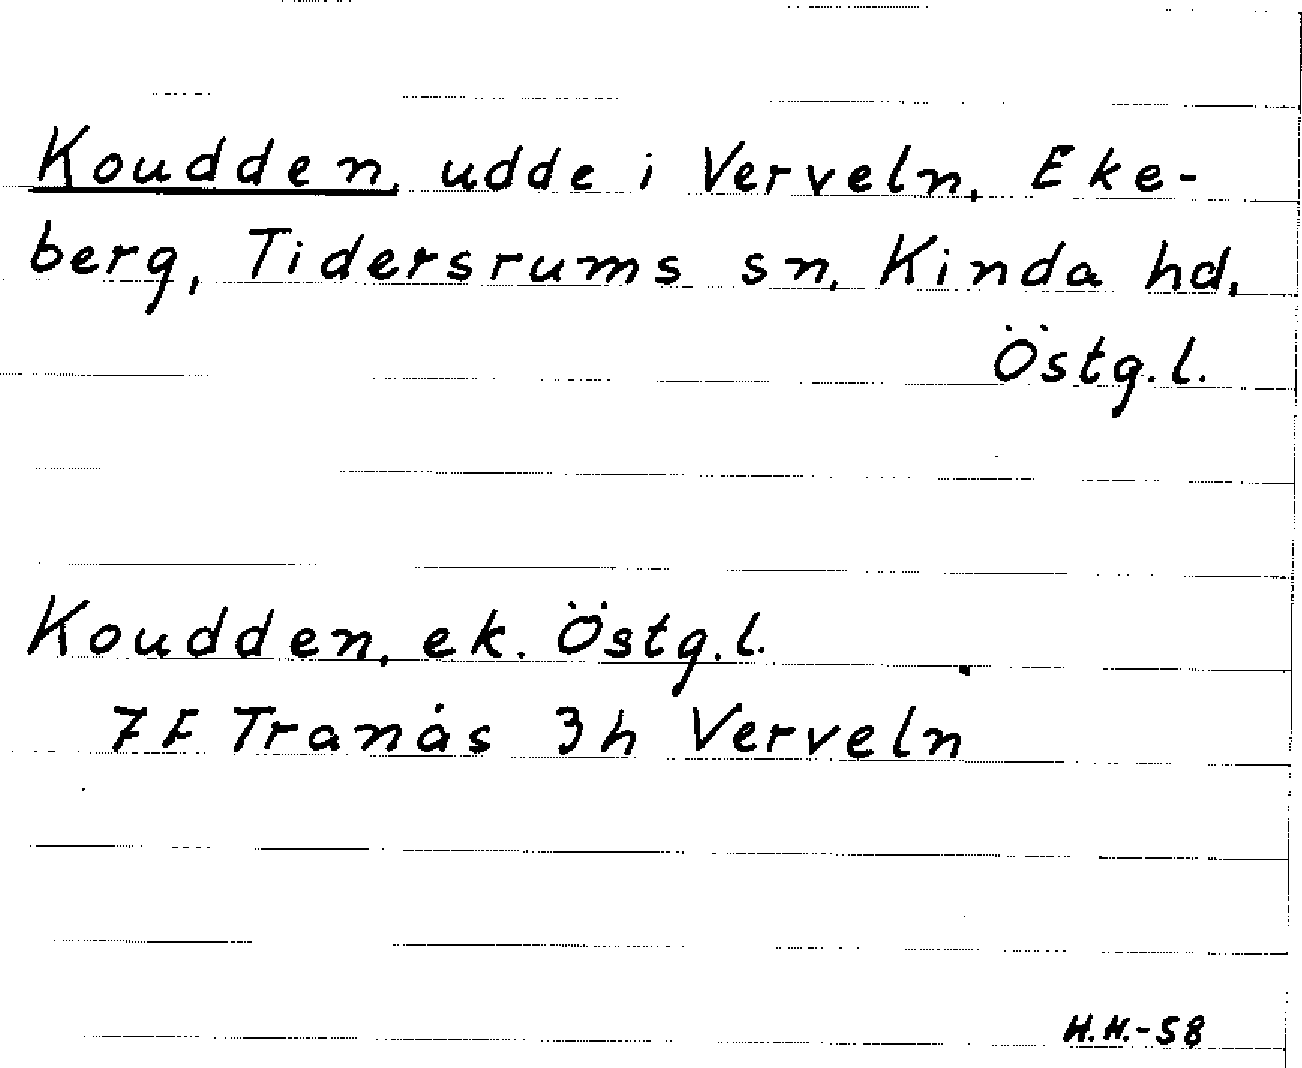 Koudden, udde i Verveln, Eke-
berg, Tidersrums sn, Kinda hd,
Östg.l.
Koudden, ek. Östg.l.
7F Tranås 3h Verveln
H.H.-58